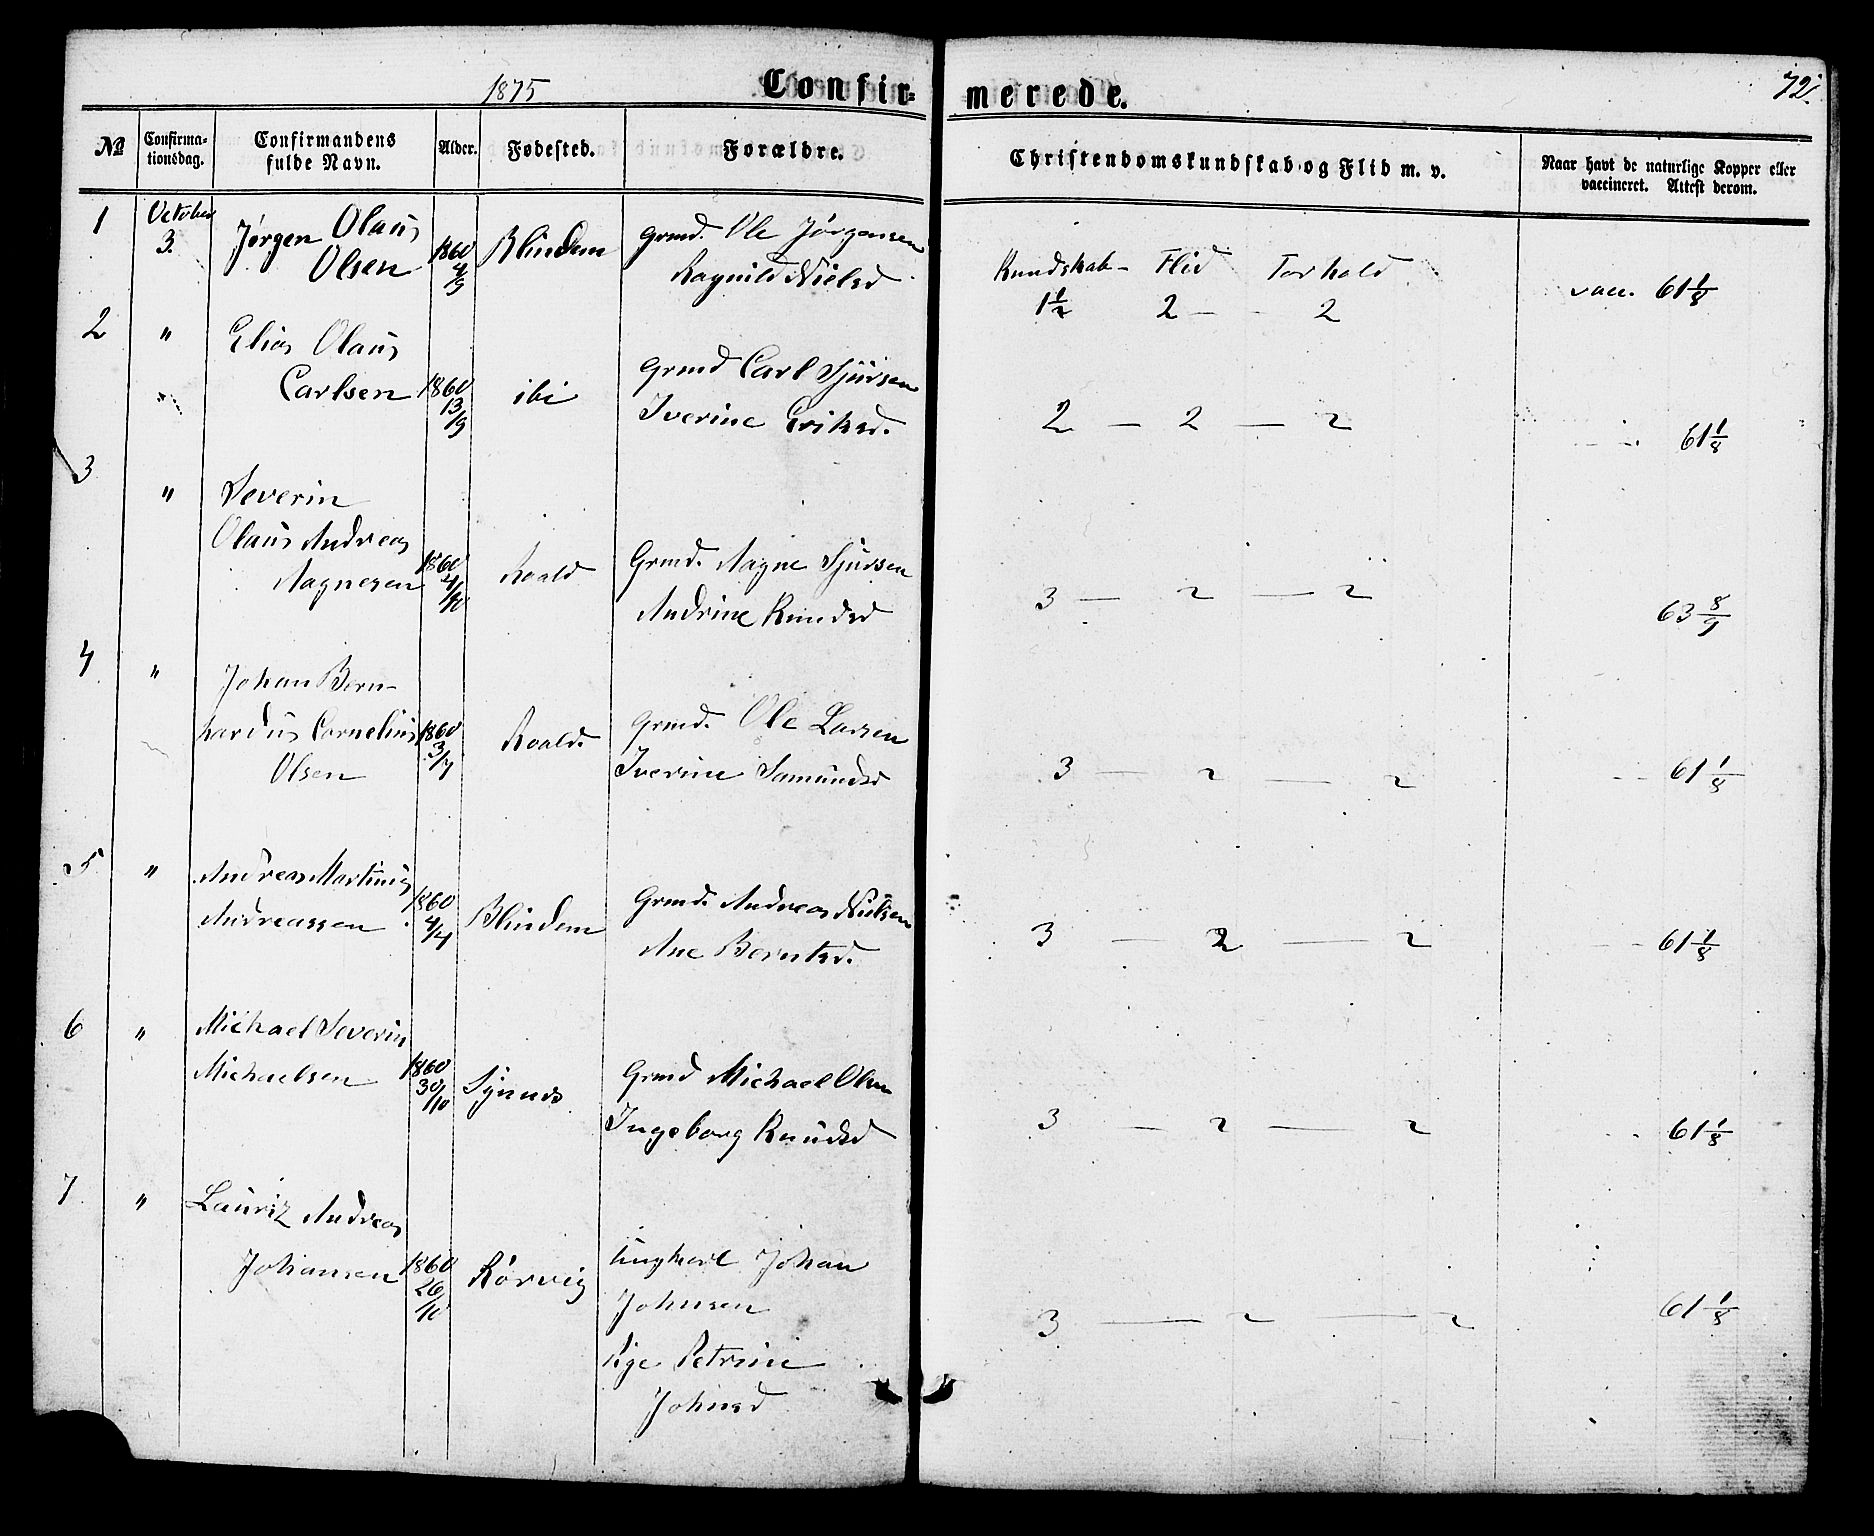 1875 Confir- merede. 72.
№ Confirmationsdag. Confirmandens fulde Navn. Alder. Fødested. Forældre. Christendomskundskab og Flid m. v. Naar havt de naturlige Kopper eller vaccineret. Attest derom.
1 October 3. Jørgen Olaus
Olsen 1860 4/9 Blindem grmd. Ole Jørgensen
Ragnild Nielsd
Kundskab - Flid Forhold
1½ 2 - - 2 vacc. 61 1/8
2 " Elias Olaus
Carlsen 1860 13/9 ibi grmd Carl Sjursen
Iverine Eriksd.
2 — 2 — 2 61 1/8
3 " Severin
Olaus Andreas
Aagnesen 1860 Roald Grmd. Aagne Sjursen
Andrine Knudsd
3 — 2 — 2 63 8/9
4 " Johan Bern-
hardus Cornelius
Olsen 1860 3/7 Roald. grmd. Ole Larsen
Iverine Samundsd
3 — 2 — 2 61 1/8
5 " Andreas Martinus
Andreassen 1860 4/4 Blindem Grmd. Andreas Nielsen
Ane Berntsd.
3 — 2 — 2 61 1/8
6 " Michael Severin
Michaelsen 1860 30/10 Synnes Grmd Michael Olsen
Ingeborg Knudsd
3 — 2 — 2 61 1/8
7 " Lauriz Andreas
Johansen 1860 26/10 Rørvig Ungkarl Johan
Johnsen
Pige Petrine
Johnsd
3 — 2 — 2 61 1/8